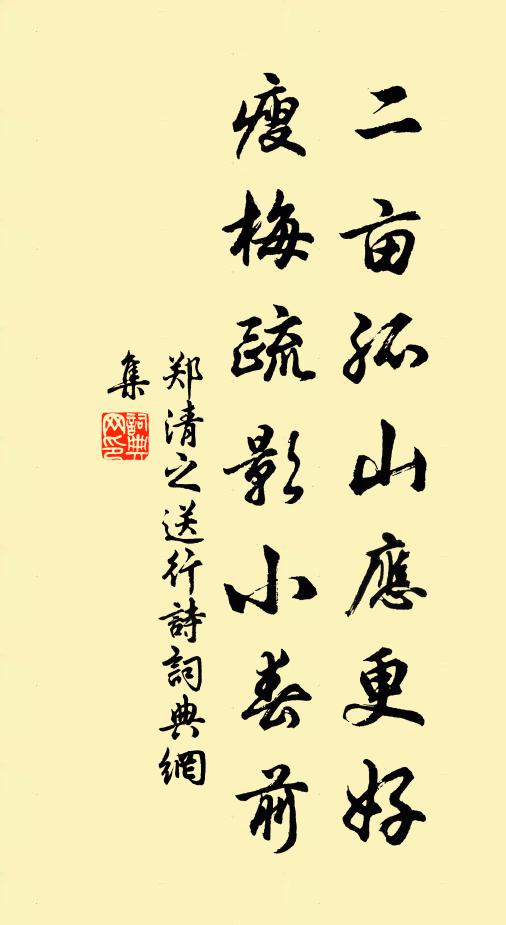 二亩孤山應更好
瘦梅疏影小春前
郑清之送行詩詞典網
集
詞典网印